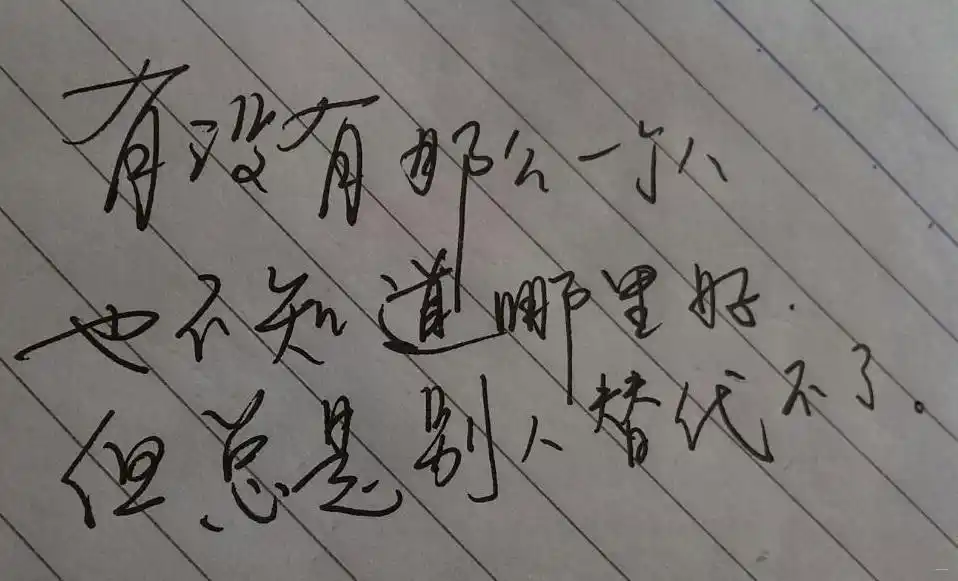 有没有那么一个人
也不知道哪里好.
但总是别人替代不了。